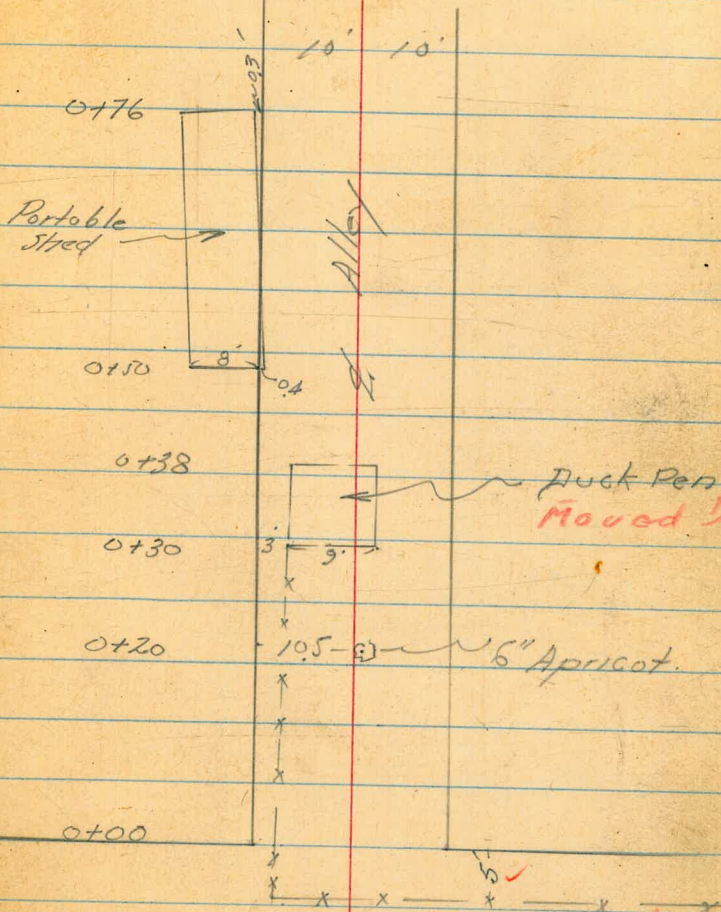 10' 10'
0.3'
0+76
Portable
Shed
Alley
8'
0+50
0.4
0+38
Duck Pen
Moved
0+30
3'
9'
0+20
10.5
6" Apricot.
0+00
5'